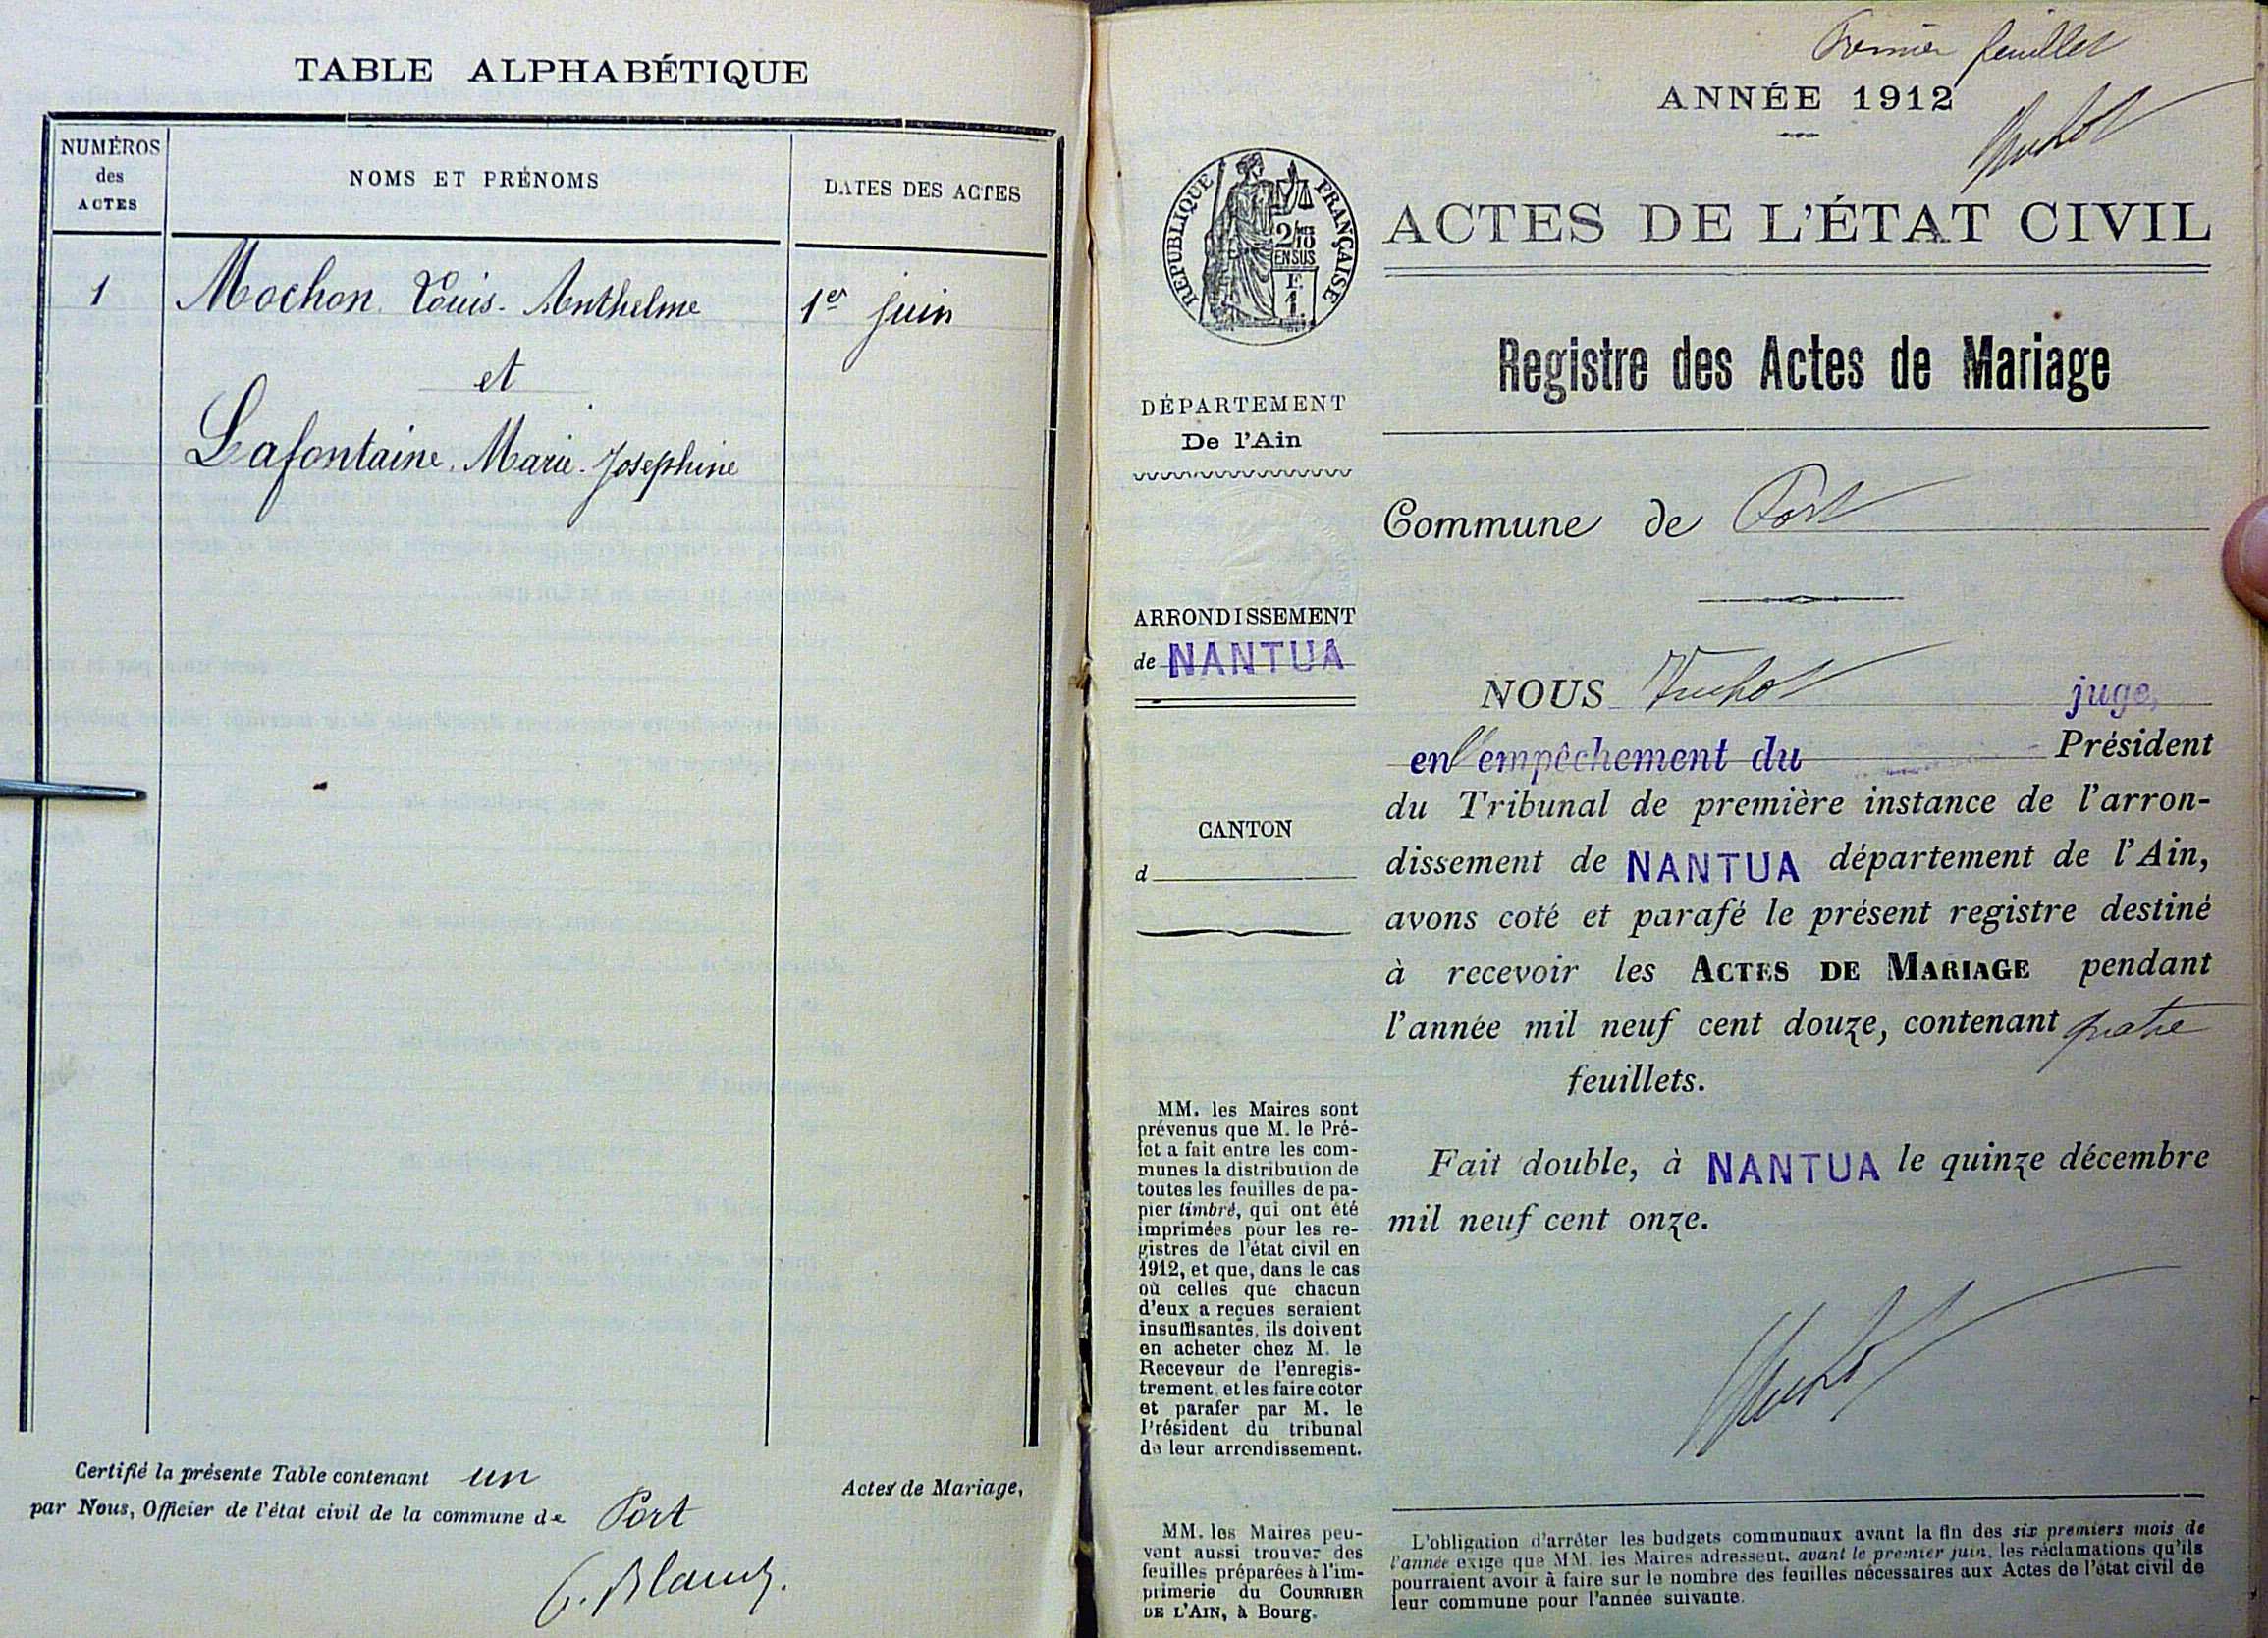 TABLE ALPHABÉTIQUE
NUMÉROS
des
ACTES
NOMS ET PRÉNOMS
DATES DES ACTES
1 Mochon Louis-Anthelme 1er juin
et
Lafontaine Marie-Josephine
Certifié la présente Table contenant un Actes de Mariage,
par Nous, Officier de l'état civil de la commune de Port
Premier feuillet
ANNÉE 1912
RÉPUBLIQUE FRANÇAISE
2/10
EN SUS
F.
1.
DÉPARTEMENT
De l'Ain
ARRONDISSEMENT
de NANTUA
CANTON
d
MM. les Maires sont
prévenus que M. le Pré-
fet a fait entre les com-
munes la distribution de
toutes les feuilles de pa-
pier timbré, qui ont été
imprimées pour les re-
gistres de l'état civil en
1912, et que, dans le cas
où celles que chacun
d'eux a reçues seraient
insuffisantes, ils doivent
en acheter chez M. le
Receveur de l'enregis-
trement, et les faire coter
et parafer par M. le
Président du tribunal
de leur arrondissement.
MM. les Maires peu-
vent aussi trouver des
feuilles préparées à l'im-
primerie du COURRIER
DE L'AIN, à Bourg.
ACTES DE L'ÉTAT CIVIL
Registre des Actes de Mariage
Commune de Port
NOUS juge,
en l'empêchement du Président
du Tribunal de première instance de l'arron-
dissement de NANTUA département de l'Ain,
avons coté et parafé le présent registre destiné
à recevoir les ACTES DE MARIAGE pendant
l'année mil neuf cent douze, contenant quatre
feuillets.
Fait double, à NANTUA le quinze décembre
mil neuf cent onze.
L'obligation d'arrêter les budgets communaux avant la fin des six premiers mois de
l'année exige que MM. les Maires adressent, avant le premier juin, les réclamations qu'ils
pourraient avoir à faire sur le nombre des feuilles nécessaires aux Actes de l'état civil de
leur commune pour l'année suivante.